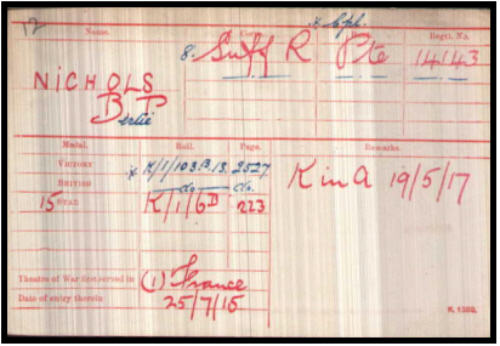 12
Name. Corps. Rank. Regtl. No.
* Cpl.
8. Suff R Pte 14143
NICHOLS
B P
Bertie
Medal. Roll. Page. Remarks.
VICTORY * K/1/103.B.13. 2527
BRITISH do do.
15 STAR K/1/6D 223
K in A 19/5/17
Theatre of War first served in (1) France
Date of entry therein 25/7/15
K. 1380.